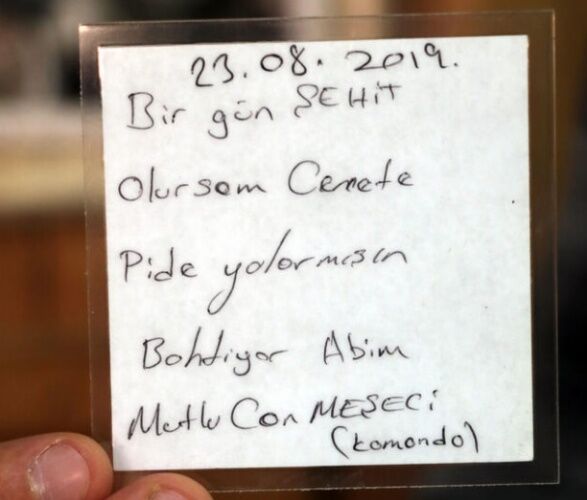 23.08.2019.
Bir gün ŞEHiT
Olursam Cenete
Pide yolarmısın
Bahdiyar Abim
Mutlu Can MEŞECi
(komando)